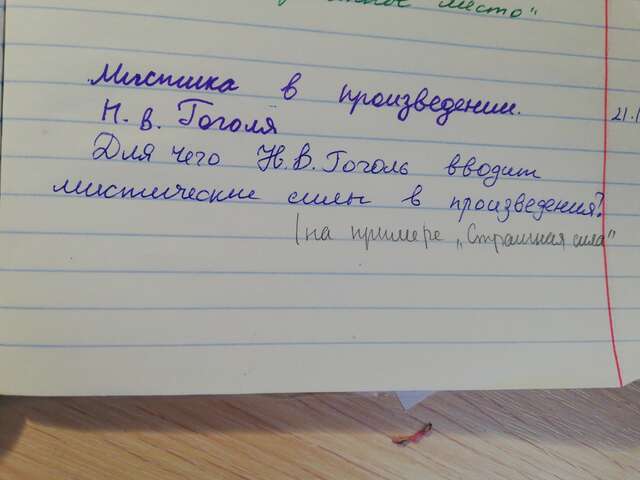 место"
Мистика в произведении.
Н. В. Гоголя
21.1
Для чего Н.В. Гоголь вводит
мистические силы в произведения?
(на примере „Страшная сила"